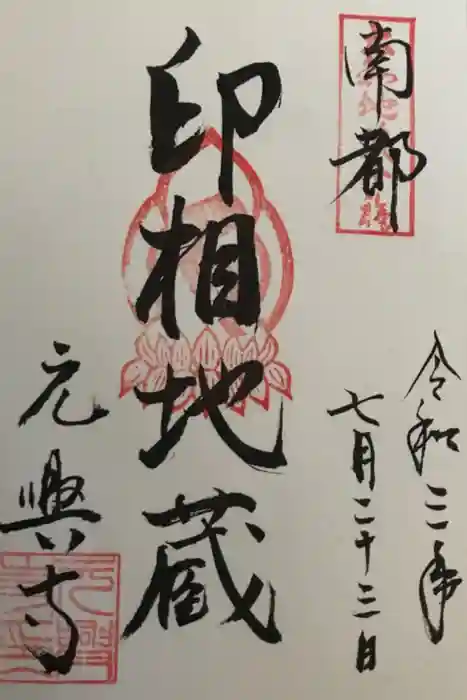 南都
令和二年
七月二十三日
印相地蔵
元興寺